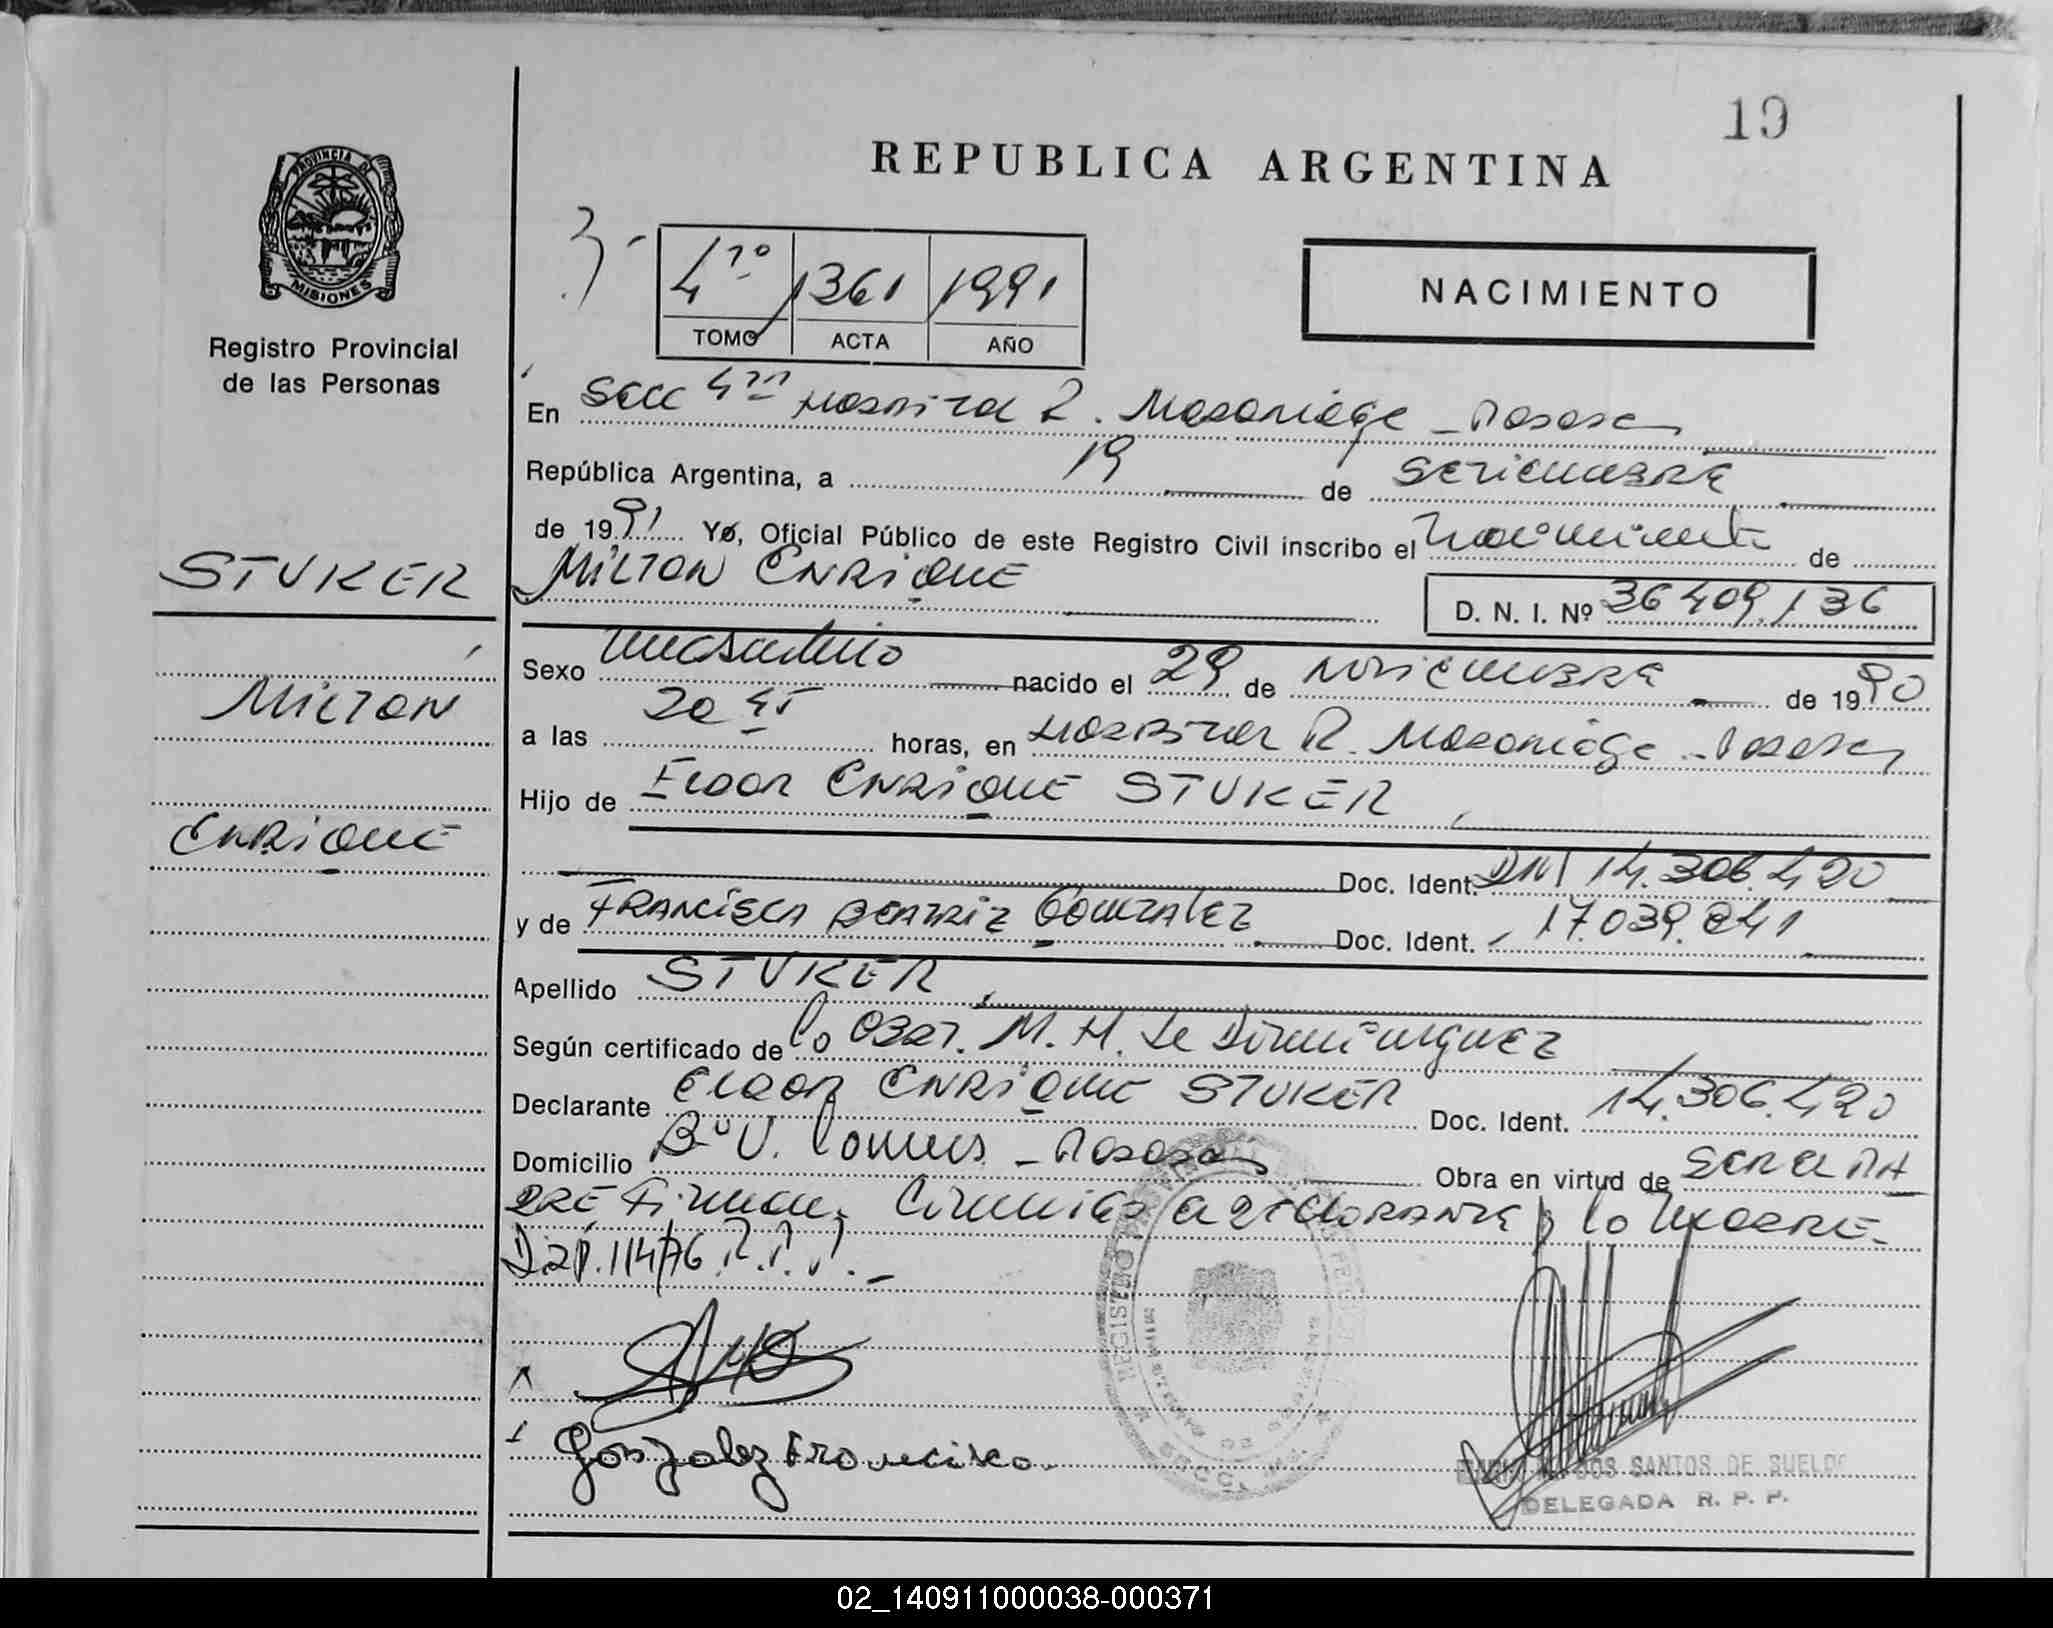 19
REPUBLICA ARGENTINA
PROVINCIA DE
MISIONES
Registro Provincial
de las Personas
4to 1361 1991
TOMO ACTA AÑO
NACIMIENTO
En Secc 4ta Hospital R. Madariaga - Posadas
República Argentina, a 19 de SETIEMBRE
de 1991 Yo, Oficial Público de este Registro Civil inscribo el nacimiento de
MILTON ENRIQUE D. N. I. Nº 36409136
STUKER
MILTON
ENRIQUE
Sexo masculino nacido el 29 de NOVIEMBRE de 1990
a las 20 45 horas, en Hospital R. Madariaga - Posadas
Hijo de ELDOR ENRIQUE STUKER
Doc. Ident. DNI 14.306.420
y de FRANCISCA BEATRIZ GONZALEZ Doc. Ident. 17.039.841
Apellido STUKER
Según certificado de la Obst. M. H. de Dominguez
Declarante ELDOR ENRIQUE STUKER Doc. Ident. 14.306.420
Domicilio Bº V. Lanus - Posadas Obra en virtud de SER EL PA
DRE Firman Conmigo el DECLARANTE y la MADRE.
Disp. 114/76 R.P.P. -
Gonzalez Francisca
DOS SANTOS DE SUELDO
DELEGADA R. P. P.
02_140911000038-000371